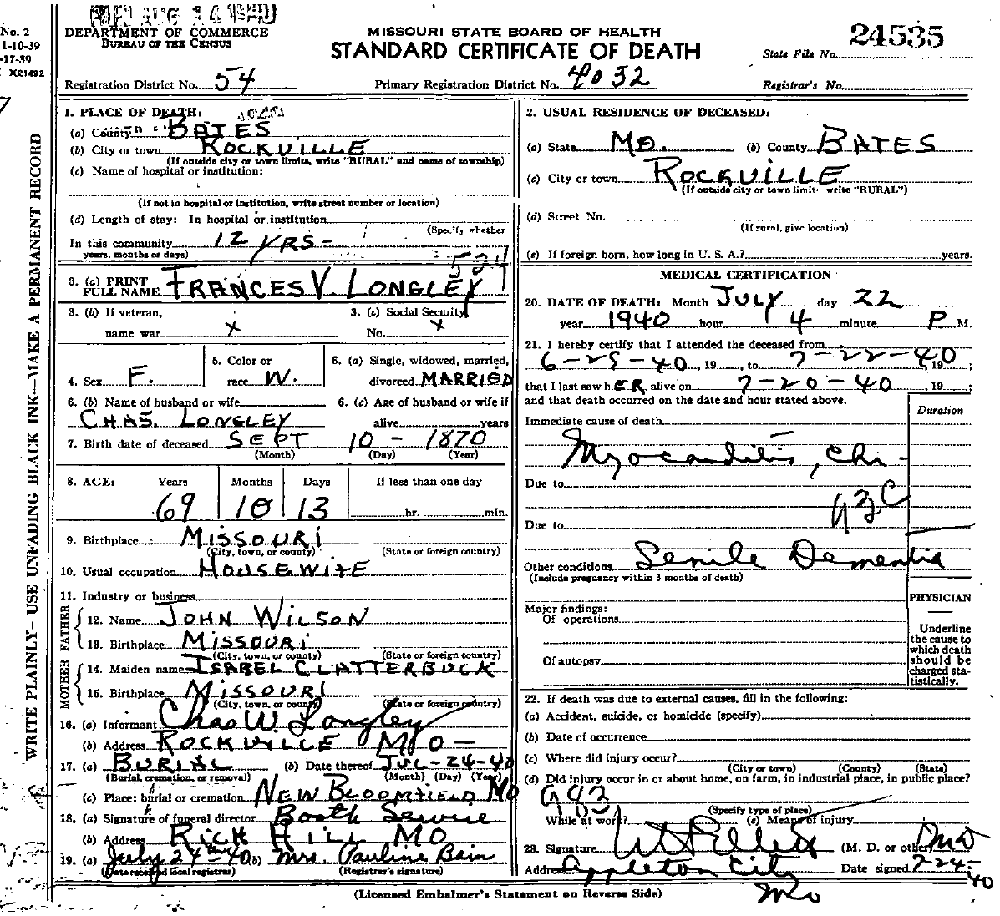 No. 2
1-10-39
-17-39
X21492
AUG 14 1940
DEPARTMENT OF COMMERCE
BUREAU OF THE CENSUS
MISSOURI STATE BOARD OF HEALTH
STANDARD CERTIFICATE OF DEATH
State File No. 24535
Registration District No. 54
Primary Registration District No. 4032
Registrar's No.
WRITE PLAINLY—USE UNFADING BLACK INK—MAKE A PERMANENT RECORD
1. PLACE OF DEATH:
(a) County BATES
(b) City or town ROCKVILLE
(If outside city or town limits, write "RURAL" and name of township)
(c) Name of hospital or institution:
(If not in hospital or institution, write street number or location)
(d) Length of stay: In hospital or institution
(Specify whether
In this community 12 YRS-
years, months or days)
2. USUAL RESIDENCE OF DECEASED:
(a) State MO. (b) County BATES
(c) City or town ROCKVILLE
(If outside city or town limits write "RURAL")
(d) Street No.
(If rural, give location)
(e) If foreign born, how long in U. S. A.? years.
3. (a) PRINT
FULL NAME FRANCES V. LONGLEY
3. (b) If veteran,
name war x
3. (c) Social Security
No. x
4. Sex F.
5. Color or
race W.
6. (a) Single, widowed, married,
divorced MARRIED
6. (b) Name of husband or wife
CHAS. LONGLEY
6. (c) Age of husband or wife if
alive years
7. Birth date of deceased SEPT 10 - 1870
(Month) (Day) (Year)
8. AGE: Years Months Days If less than one day
69 10 13 hr. min.
9. Birthplace MISSOURI
(City, town, or county) (State or foreign country)
10. Usual occupation HOUSEWIFE
11. Industry or business
FATHER
12. Name JOHN WILSON
13. Birthplace MISSOURI
(City, town, or county) (State or foreign country)
MOTHER
14. Maiden name ISABEL CLATTERBUCK
15. Birthplace MISSOURI
(City, town, or county) (State or foreign country)
16. (a) Informant Chas W. Longley
(b) Address ROCKVILLE MO -
17. (a) BURIAL (b) Date thereof JUL-24-40
(Burial, cremation, or removal) (Month) (Day) (Year)
(c) Place: burial or cremation NEW BLOOMFIELD MO
18. (a) Signature of funeral director Booth Service
(b) Address RICH HILL MO
19. (a) July 24-40 (b) Mrs. Pauline Bain
(Date received local registrar) (Registrar's signature)
MEDICAL CERTIFICATION
20. DATE OF DEATH: Month JULY day 22
year 1940 hour 4 minute P M.
21. I hereby certify that I attended the deceased from
6-25-40, 19 , to 7-22-40, 19 ;
that I last saw hER alive on 7-20-40, 19 ;
and that death occurred on the date and hour stated above.
Duration
Immediate cause of death
Myocarditis, Chr-
Due to
93C
Due to
Other conditions Senile Dementia
(Include pregnancy within 3 months of death)
Major findings:
Of operations
Of autopsy
PHYSICIAN
Underline
the cause to
which death
should be
charged sta-
tistically.
22. If death was due to external causes, fill in the following:
(a) Accident, suicide, or homicide (specify)
(b) Date of occurrence
(c) Where did injury occur?
(City or town) (County) (State)
(d) Did injury occur in or about home, on farm, in industrial place, in public place?
(Specify type of place)
While at work? (e) Means of injury
23. Signature (M. D. or other) MD
Address Appleton City Mo Date signed 7-24-40
(Licensed Embalmer's Statement on Reverse Side)